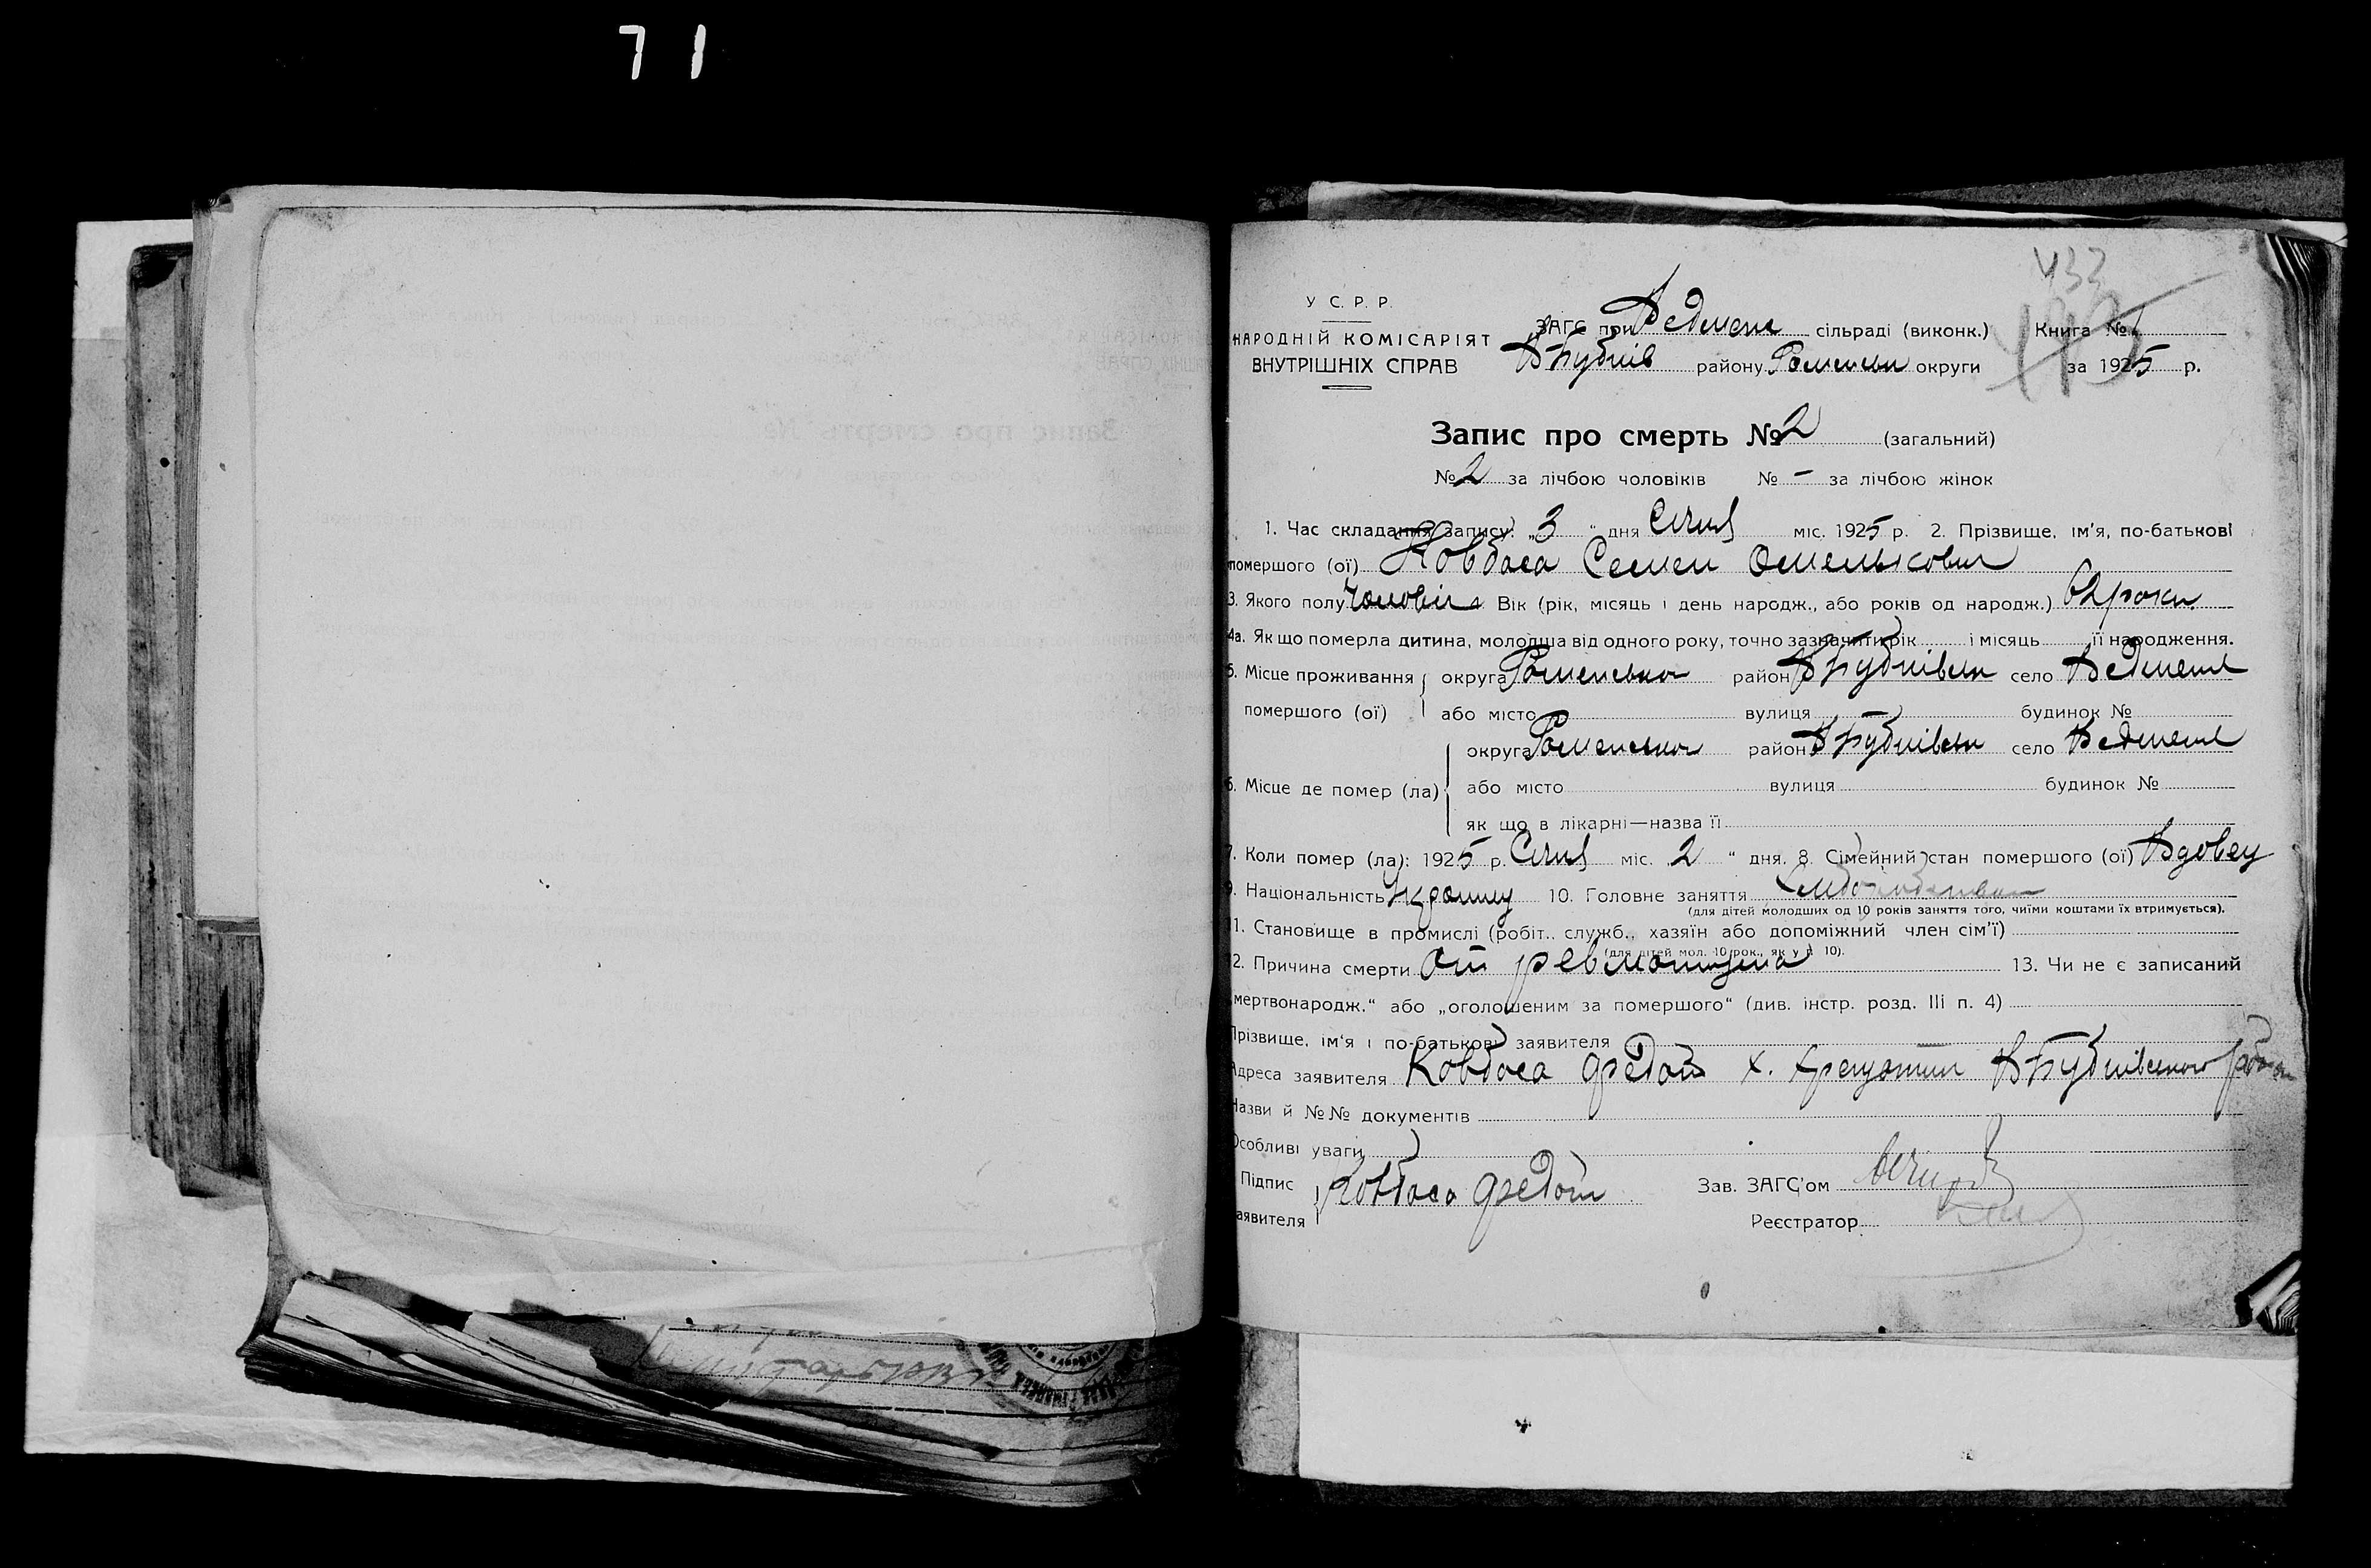 71
433
У С. Р. Р.
НАРОДНІЙ КОМІСАРІЯТ
ВНУТРІШНІХ СПРАВ
ЗАГС при Ведмеже сільраді (виконк.) Книга №
ВБубнів району Роменськ округи за 1925 р.
Запис про смерть № 2 (загальний)
№ 2 за лічбою чоловіків № – за лічбою жінок
1. Час складання запису: „3“ дня Січня міс. 1925 р. 2. Прізвище, ім'я, по-батькові
помершого (ої) Ковбаса Семен Омелькович
3. Якого полу Чоловіч. Вік (рік, місяць і день народж., або років од народж.) 62 роки
4а. Як що померла дитина, молодша від одного року, точно зазначити рік і місяць її народження.
5. Місце проживання округа Роменська район ВБубнівськ село Ведмеже
помершого (ої) або місто вулиця будинок №
округа Роменська район ВБубнівськ село Ведмеже
6. Місце де помер (ла) або місто вулиця будинок №
як що в лікарні—назва її
7. Коли помер (ла): 1925 р. Січня міс. 2 “ дня. 8. Сімейний стан помершого (ої) Вдовец
9. Національність Українец 10. Головне заняття
(для дітей молодших од 10 років заняття того, чиїми коштами їх втримується).
11. Становище в промислі (робіт., служб., хазяїн або допоміжний член сім'ї)
(для дітей мол. 10 рок., як у п 10).
12. Причина смерти От ревматизма 13. Чи не є записаний
мертвонародж.“ або „оголошеним за помершого“ (див. інстр. розд. III п. 4)
Прізвище, ім'я і по-батькові заявителя
Адреса заявителя Ковбаса Федот х. ВБубнівського района
Назви й №№ документів
Особливі уваги
Підпис Ковбаса Федот Зав. ЗАГС'ом
заявителя Реєстратор